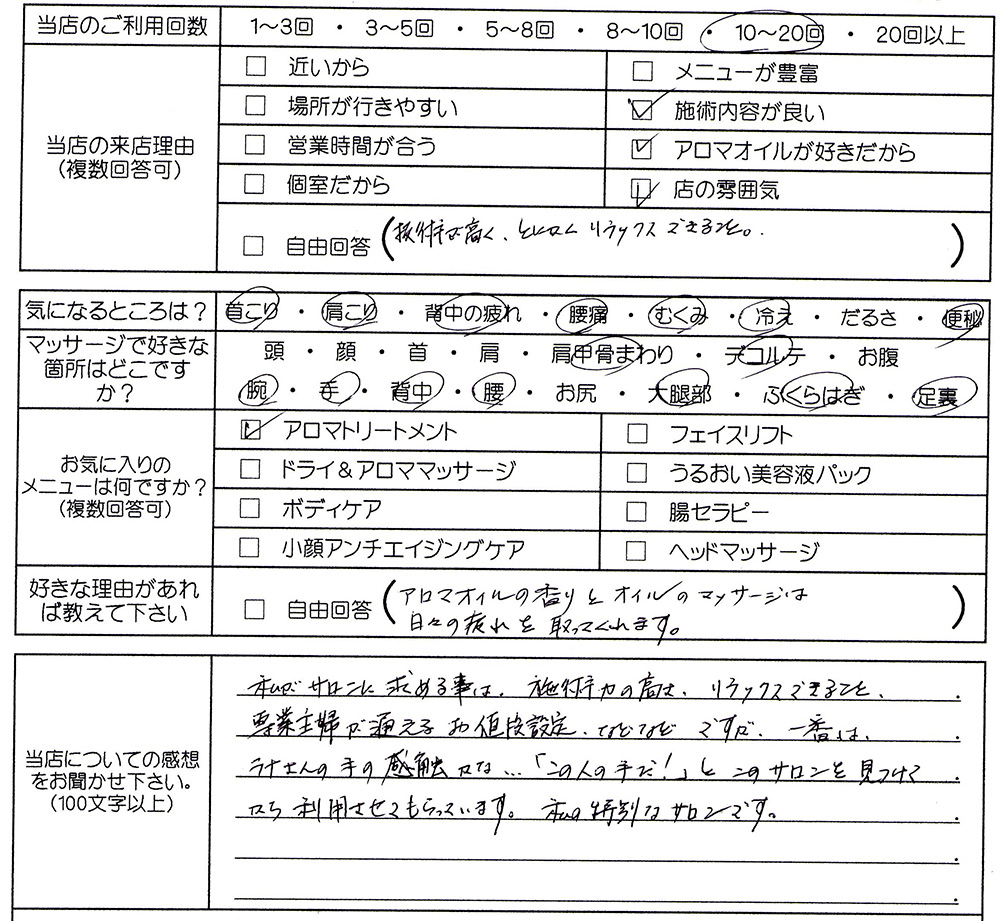 当店のご利用回数 1〜3回 ・ 3〜5回 ・ 5〜8回 ・ 8〜10回 ・ 10〜20回 ・ 20回以上
当店の来店理由
(複数回答可)
□ 近いから □ メニューが豊富
□ 場所が行きやすい ☑ 施術内容が良い
□ 営業時間が合う ☑ アロマオイルが好きだから
□ 個室だから ☑ 店の雰囲気
□ 自由回答 (技術が高く、とにかくリラックスできること。)
気になるところは? 首こり ・ 肩こり ・ 背中の疲れ ・ 腰痛 ・ むくみ ・ 冷え ・ だるさ ・ 便秘
マッサージで好きな
箇所はどこです
か?
頭 ・ 顔 ・ 首 ・ 肩 ・ 肩甲骨まわり ・ デコルテ ・ お腹
腕 ・ 手 ・ 背中 ・ 腰 ・ お尻 ・ 大腿部 ・ ふくらはぎ ・ 足裏
お気に入りの
メニューは何ですか?
(複数回答可)
☑ アロマトリートメント □ フェイスリフト
□ ドライ&アロママッサージ □ うるおい美容液パック
□ ボディケア □ 腸セラピー
□ 小顔アンチエイジングケア □ ヘッドマッサージ
好きな理由があれ
ば教えて下さい
□ 自由回答 (アロマオイルの香りとオイルのマッサージは
日々の疲れを取ってくれます。)
当店についての感想
をお聞かせ下さい。
(100文字以上)
私がサロンに求める事は、施術力の高さ、リラックスできること、
専業主婦が通えるお値段設定、などなどですが、一番は、
ラナさんの手の感触かな…「この人の手だ!」とこのサロンを見つけて
から利用させてもらっています。私の特別なサロンです。